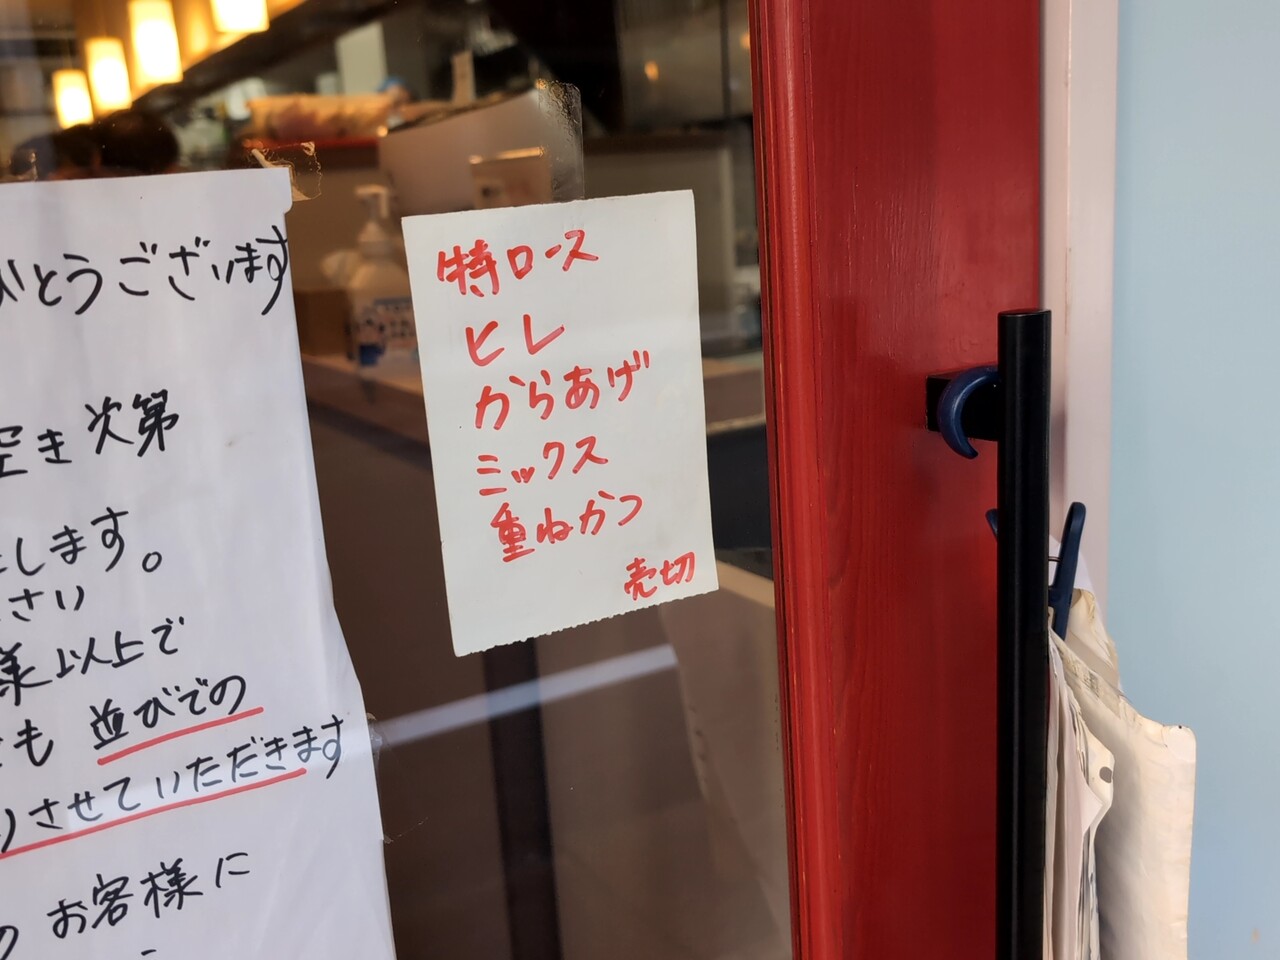 とうございます
空き次第
します。
さい
様以上で
も 並びでの
させていただきます
お客様に
特ロース
ヒレ
からあげ
ミックス
重ねかつ
売切